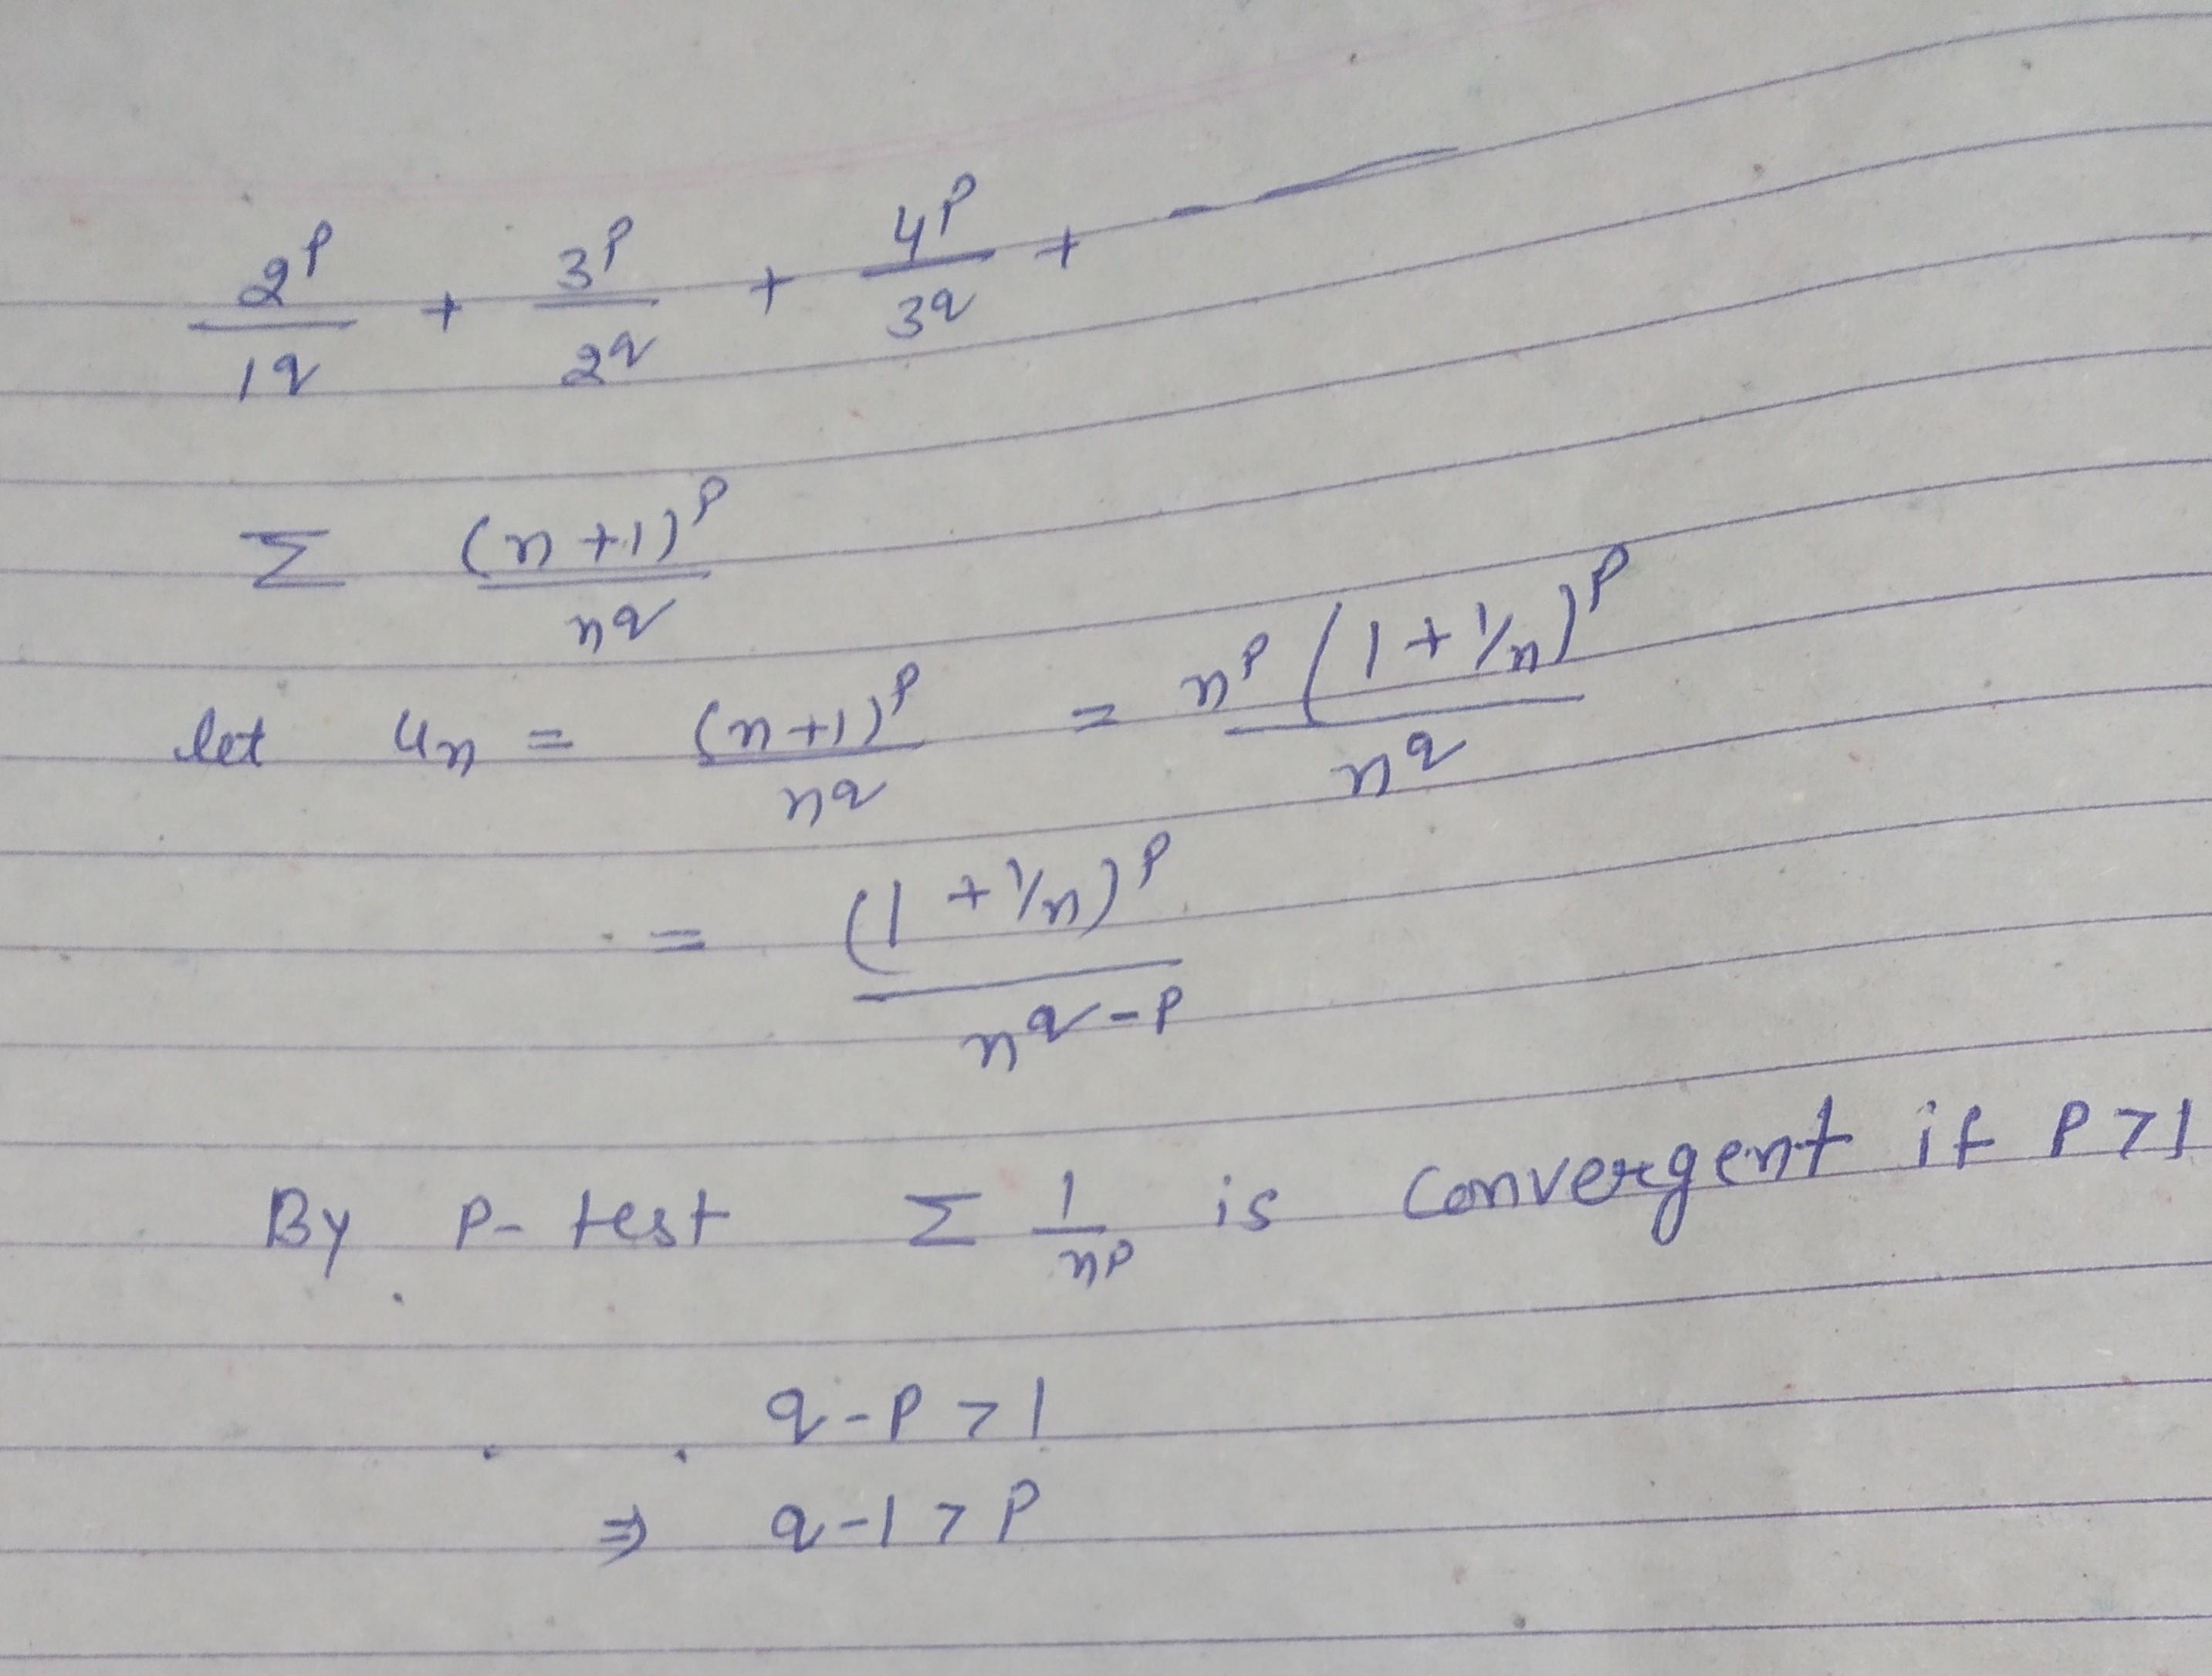 2^p/1^q + 3^p/2^q + 4^p/3^q + - —
Σ (n+1)^p/n^q
let u_n = (n+1)^p/n^q = n^p (1+1/n)^p/n^q
= (1+1/n)^p/n^(q-p)
By p-test Σ 1/n^p is convergent if p>1
q-p>1
⇒ q-1>p